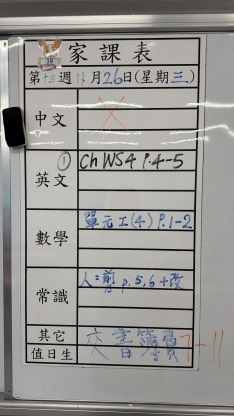 家課表
第十三週 11月26日(星期三)
中文 X
英文 ① Ch WS4 P.4-5
數學 單元工(4) P.1-2
常識 P.5,6+改
其它 交書簿費 7-11
值日生